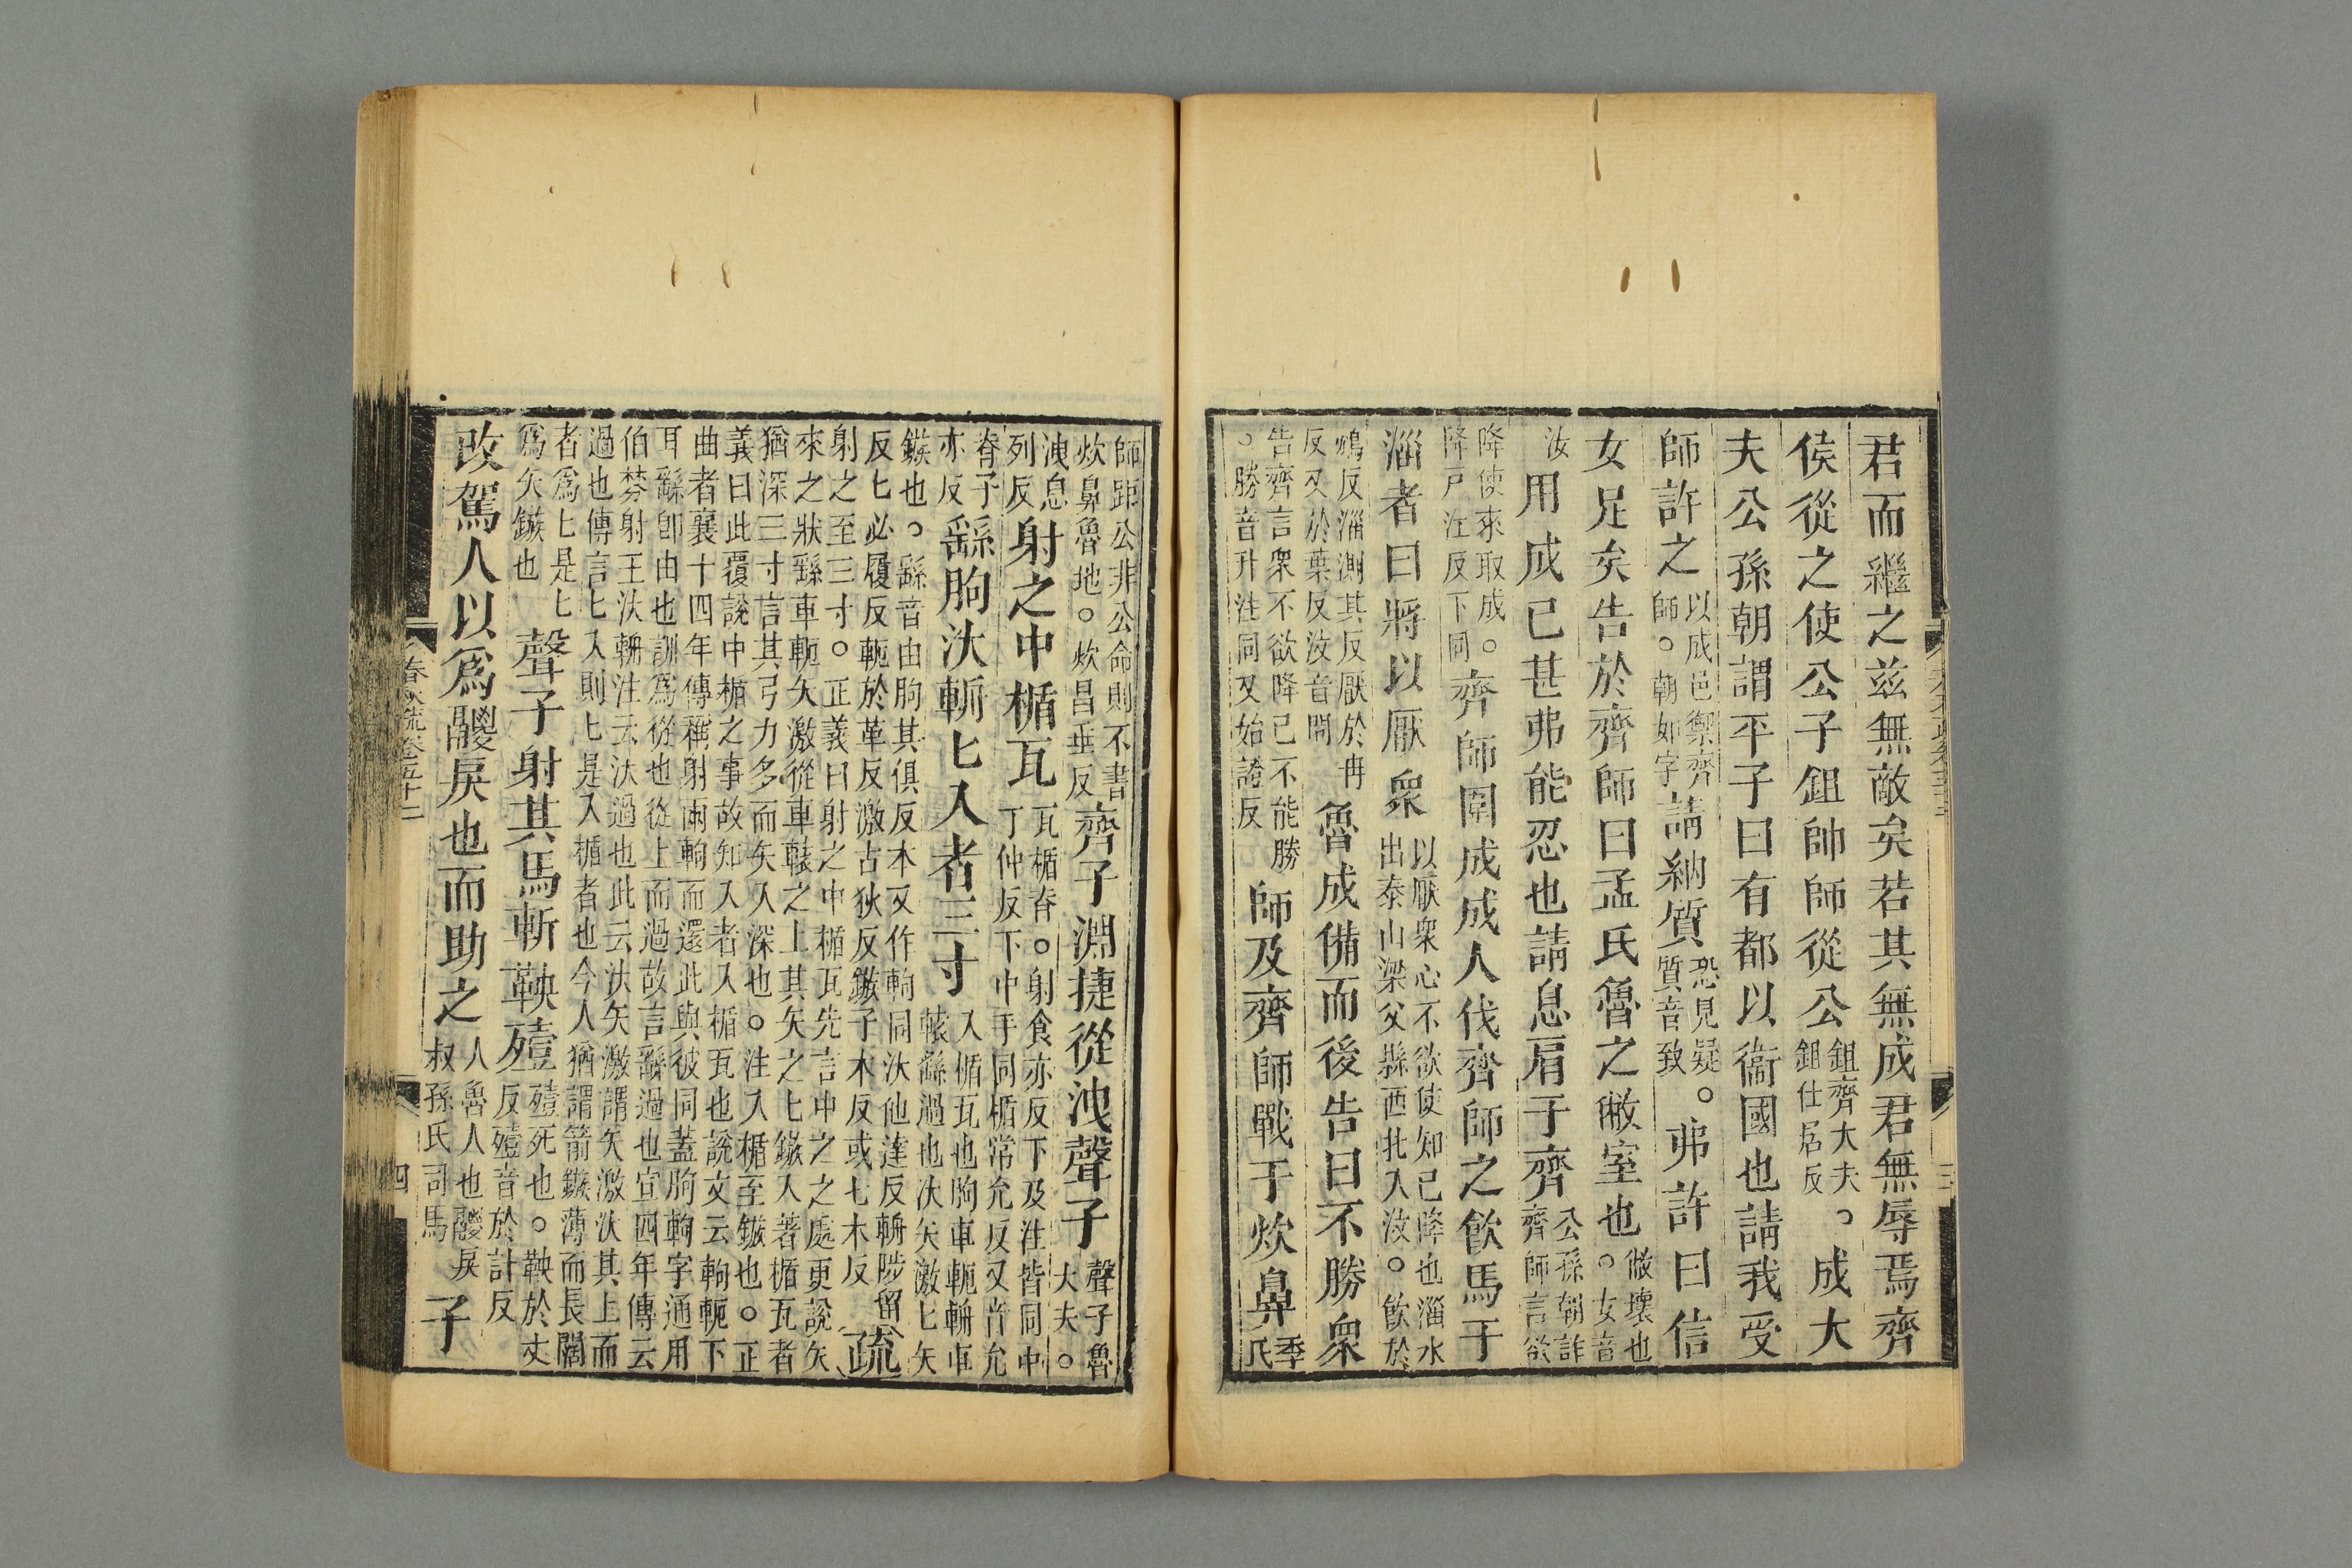 君而繼之兹無敵矣若其無成君無辱焉齊
侯從之使公子鉏帥師從公鉏齊大夫鉏仕居反。成大
夫公孫朝謂平子曰有都以衞國也請我受
師許之以成邑禦齊師。朝如字請納質恐見疑質音致。弗許曰信
女足矣告於齊師曰孟氏魯之敝室也敝壞也。女音
汝用成已甚弗能忍也請息肩于齊公孫朝詐齊師言欲
降使來取成。降戸江反下同齊師圍成成人伐齊師之飮馬于
淄者曰將以厭衆以厭衆心不欲使知己降也淄水出泰山梁父縣西北入汶。飮於
鴆反淄測其反厭於冉反又於葉反汶音問魯成備而後告曰不勝衆
告齊言衆不欲降己不能勝。勝音升注同又始證反師及齊師戰于炊鼻季氏
師距公非公命則不書炊鼻魯地。炊昌垂反齊子淵捷從洩聲子聲子魯大夫。
洩息列反射之中楯瓦瓦楯脊。射食亦反下及注皆同中丁仲反下中手同楯常允反又音允
脊子亦反繇朐汏輈匕入者三寸入楯瓦也朐車軛輈車轅繇過也汏矢激匕矢
鏃也。繇音由朐其俱反本又作軥同汏他達反輈陟留反匕必履反軛於革反激古狄反鏃子木反或七木反疏
射之至三寸。正義曰射之中楯瓦先言中之之處更說矢
來之狀繇車軛矢激從車轅之上其矢之匕鏃入著楯瓦者
猶深三寸言其弓力多而矢入深也。注入楯至鏃也。正
義曰此覆說中楯之事故知入者入楯瓦也說文云軥軛下
曲者襄十四年傳稱射兩軥而還此與彼同蓋朐軥字通用
耳繇卽由也訓爲從也從上而過故言繇過也宣四年傳云
伯棼射王汏輈注云汏過也此云汏矢激謂矢激汏其上而
過也傳言匕入則匕是入楯者也今人猶謂箭鏃薄而長闊
者爲匕是匕爲矢鏃也聲子射其馬斬鞅殪殪死也。鞅於丈反殪音於計反
改駕人以爲鬷戾也而助之人魯人也鬷戾叔孫氏司馬子
春秋疏卷五十二
四